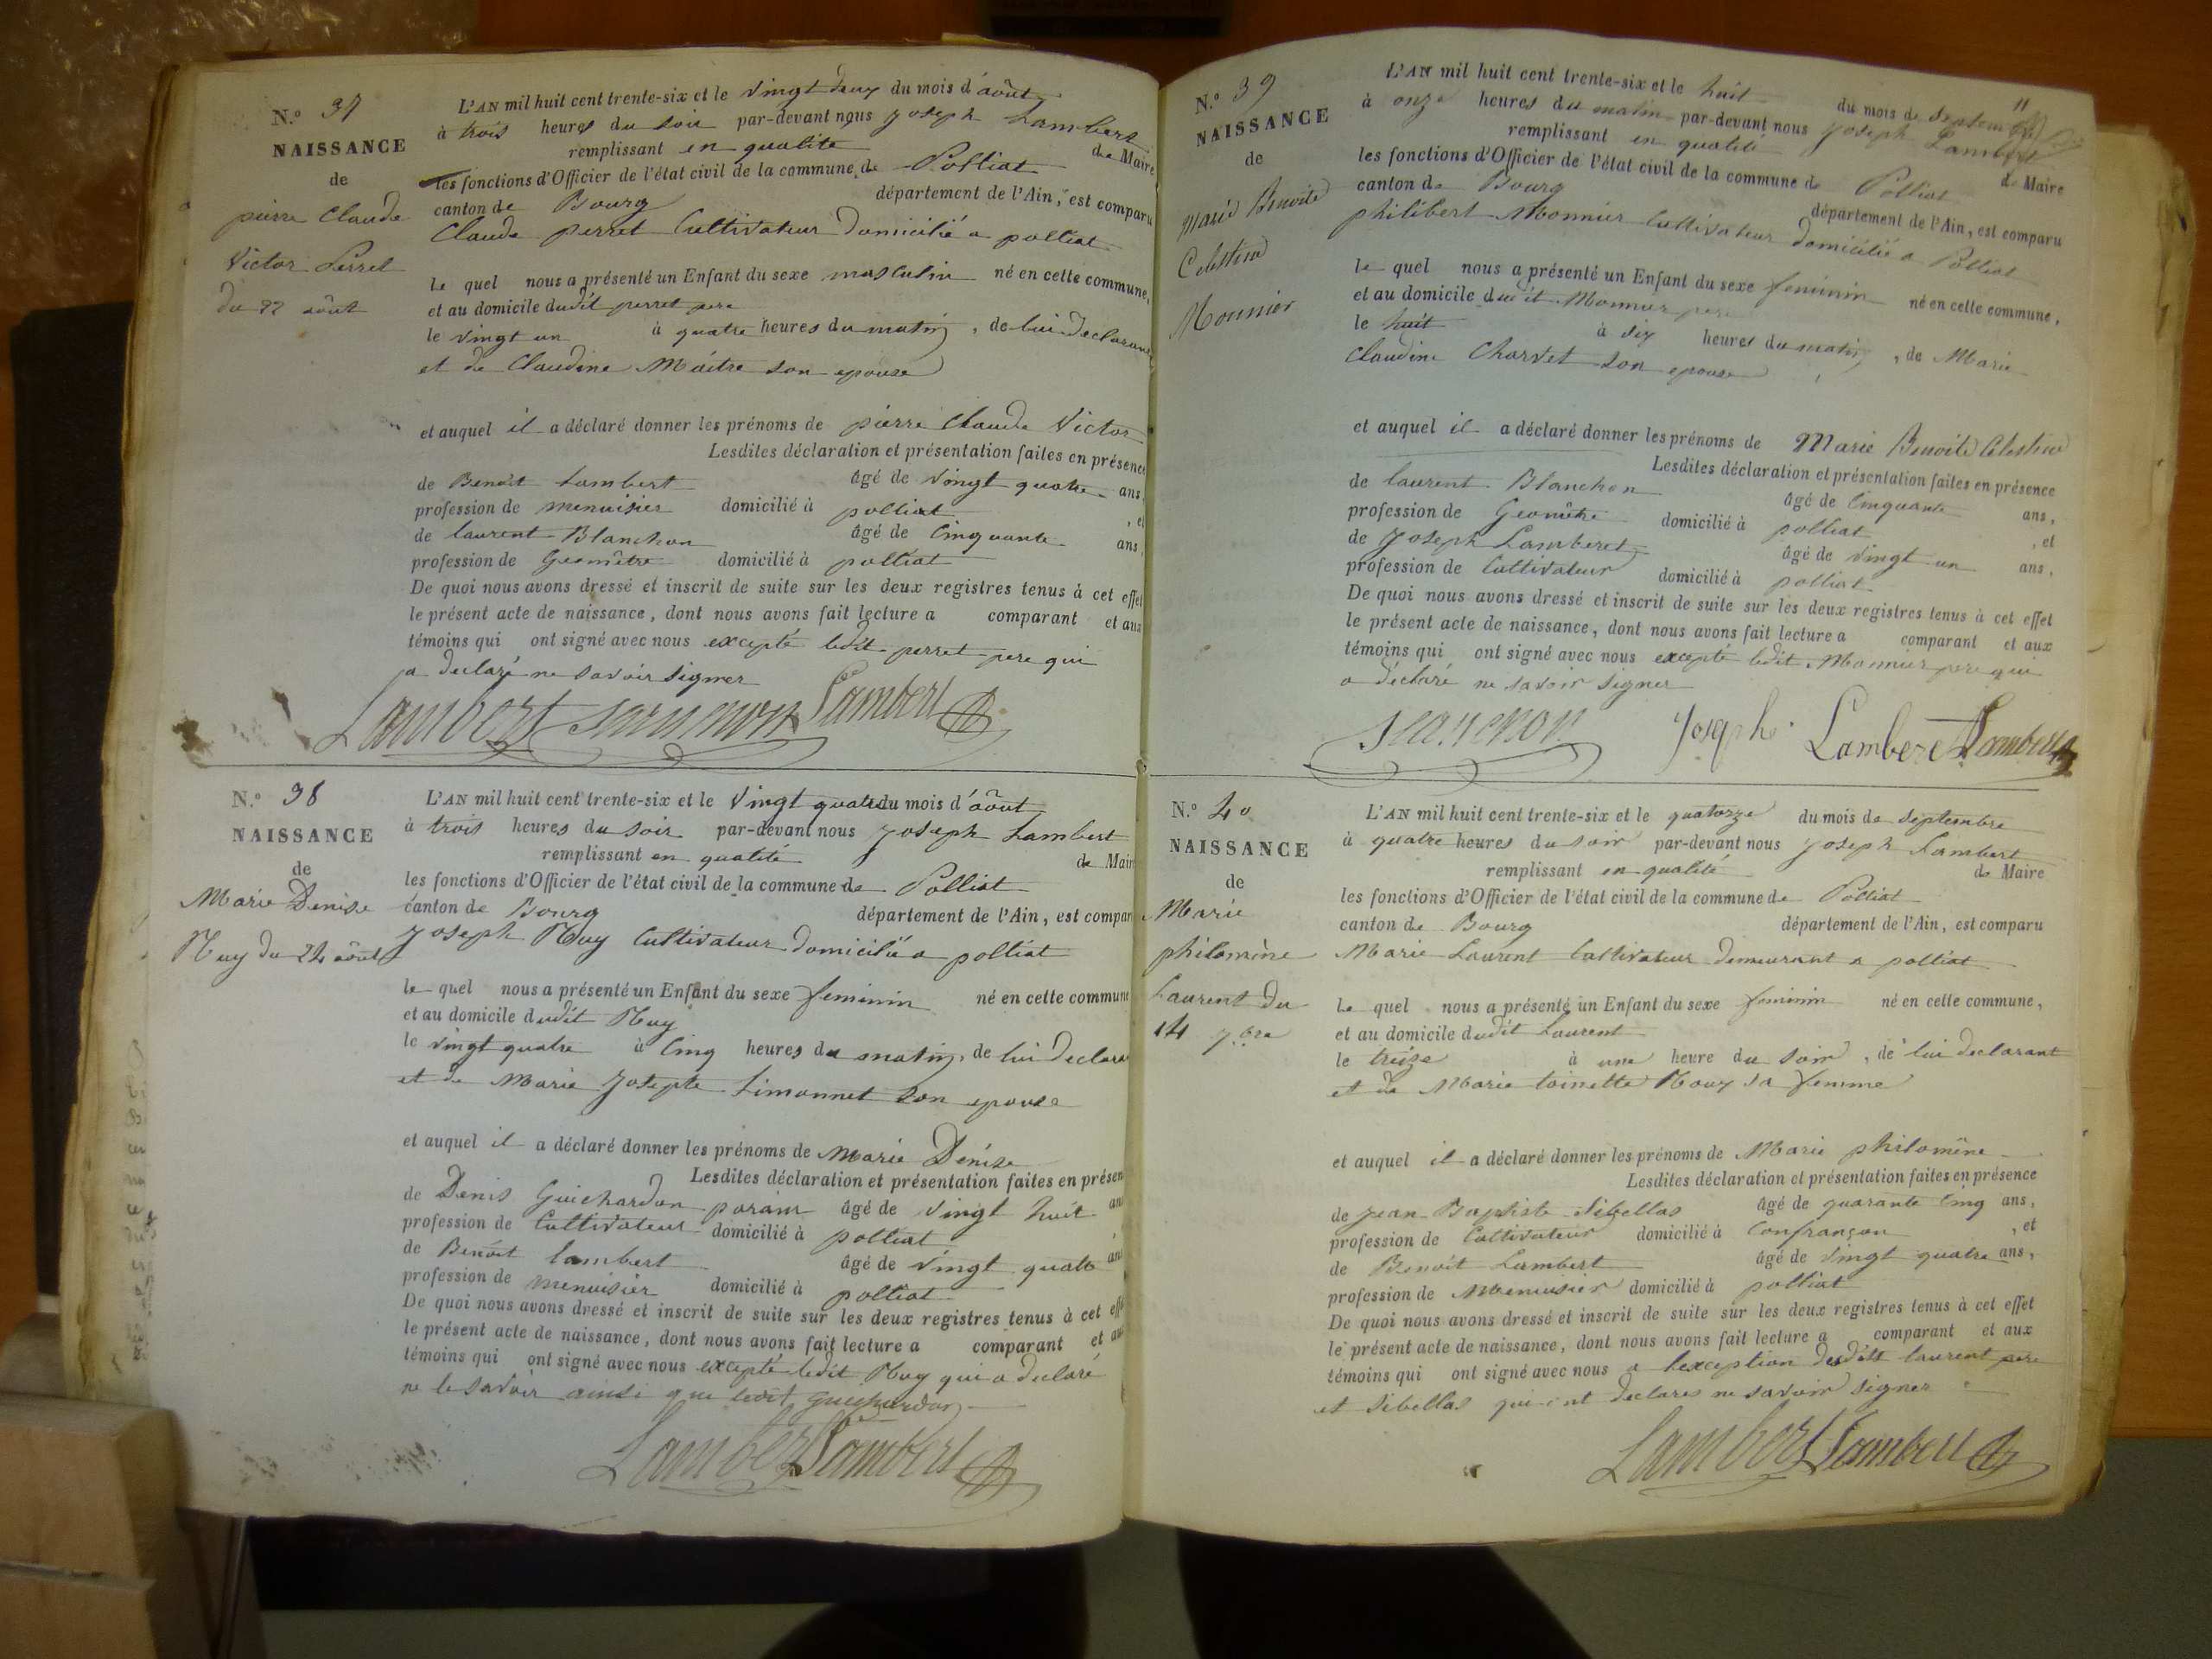 N.º 37
NAISSANCE
de
pierre Claude
Victor Perret
du 22 août
L'AN mil huit cent trente-six et le vingt deux du mois d'août
à trois heures du soir par-devant nous Joseph Lambert
remplissant en qualité de Maire
les fonctions d'Officier de l'état civil de la commune de Polliat
canton de Bourg département de l'Ain, est comparu
Claude perret Cultivateur domicilié a polliat
le quel nous a présenté un Enfant du sexe masculin né en cette commune,
et au domicile dudit perret pere
le vingt un à quatre heures du matin, de lui declarant
et de Claudine Maitre son epouse
et auquel il a déclaré donner les prénoms de pierre Claude Victor
Lesdites déclaration et présentation faites en présence
de Benoit Lambert âgé de vingt quatre ans,
profession de menuisier domicilié à polliat, et
de laurent Blanchon âgé de Cinquante ans,
profession de Géomètre domicilié à polliat
De quoi nous avons dressé et inscrit de suite sur les deux registres tenus à cet effet
le présent acte de naissance, dont nous avons fait lecture a comparant et aux
témoins qui ont signé avec nous excepté ledit perret pere qui
a declaré ne savoir signer
Lambert Lambert
N.º 38
NAISSANCE
de
Marie Denise
Muy du 24 août
L'AN mil huit cent trente-six et le vingt quatre du mois d'août
à trois heures du soir par-devant nous Joseph Lambert
remplissant en qualité de Maire
les fonctions d'Officier de l'état civil de la commune de Polliat
canton de Bourg département de l'Ain, est compar
Joseph Muy Cultivateur domicilié a polliat
le quel nous a présenté un Enfant du sexe feminin né en cette commune
et au domicile dudit Muy
le vingt quatre à Cinq heures du matin, de lui declara
et de Marie Josephte Limonnet son epouse
et auquel il a déclaré donner les prénoms de Marie Denise
Lesdites déclaration et présentation faites en présen
de Denis Guichardon parain âgé de vingt huit an
profession de Cultivateur domicilié à polliat
de Benoit lambert âgé de vingt quatre an
profession de menuisier domicilié à polliat
De quoi nous avons dressé et inscrit de suite sur les deux registres tenus à cet effe
le présent acte de naissance, dont nous avons fait lecture a comparant et au
témoins qui ont signé avec nous excepté ledit Muy qui a declaré
ne le savoir ainsi que ledit Guichardon
Lambert Lambert
11
N.º 39
NAISSANCE
de
Marie Benoite
Celestine
Monnier
L'AN mil huit cent trente-six et le huit du mois de septembre
à onze heures du matin par-devant nous Joseph Lambert
remplissant en qualité de Maire
les fonctions d'Officier de l'état civil de la commune de Polliat
canton de Bourg département de l'Ain, est comparu
philibert Monnier Cultivateur domicilié a Polliat
le quel nous a présenté un Enfant du sexe feminin né en cette commune,
et au domicile dudit Monnier pere
le huit à six heures du matin, de Marie
Claudine Charvet son epouse
et auquel il a déclaré donner les prénoms de Marie Benoite Celestine
Lesdites déclaration et présentation faites en présence
de laurent Blanchon âgé de Cinquante ans,
profession de Géomètre domicilié à polliat, et
de Joseph Lamberet âgé de vingt un ans,
profession de Cultivateur domicilié à polliat
De quoi nous avons dressé et inscrit de suite sur les deux registres tenus à cet effet
le présent acte de naissance, dont nous avons fait lecture a comparant et aux
témoins qui ont signé avec nous excepté ledit Monnier pere qui
a déclaré ne savoir signer
Joseph Lamberet Lambert
N.º 40
NAISSANCE
de
Marie
philomène
Laurent du
14 7bre
L'AN mil huit cent trente-six et le quatorze du mois de septembre
à quatre heures du soir par-devant nous Joseph Lambert
remplissant en qualité de Maire
les fonctions d'Officier de l'état civil de la commune de Polliat
canton de Bourg département de l'Ain, est comparu
Marie Laurent Cultivateur demeurant a polliat
le quel nous a présenté un Enfant du sexe feminin né en cette commune,
et au domicile dudit Laurent
le treize à une heure du soir, de lui declarant
et de Marie toinette Mouy sa femme
et auquel il a déclaré donner les prénoms de Marie philomène
Lesdites déclaration et présentation faites en présence
de Jean Baptiste Sibellas âgé de quarante Cinq ans,
profession de Cultivateur domicilié à Confrançon, et
de Benoit Lambert âgé de vingt quatre ans,
profession de Menuisier domicilié à polliat
De quoi nous avons dressé et inscrit de suite sur les deux registres tenus à cet effet
le présent acte de naissance, dont nous avons fait lecture a comparant et aux
témoins qui ont signé avec nous a lexception desdits laurent pere
et Sibellas qui ont declarés ne savoir signer
Lambert Lambert